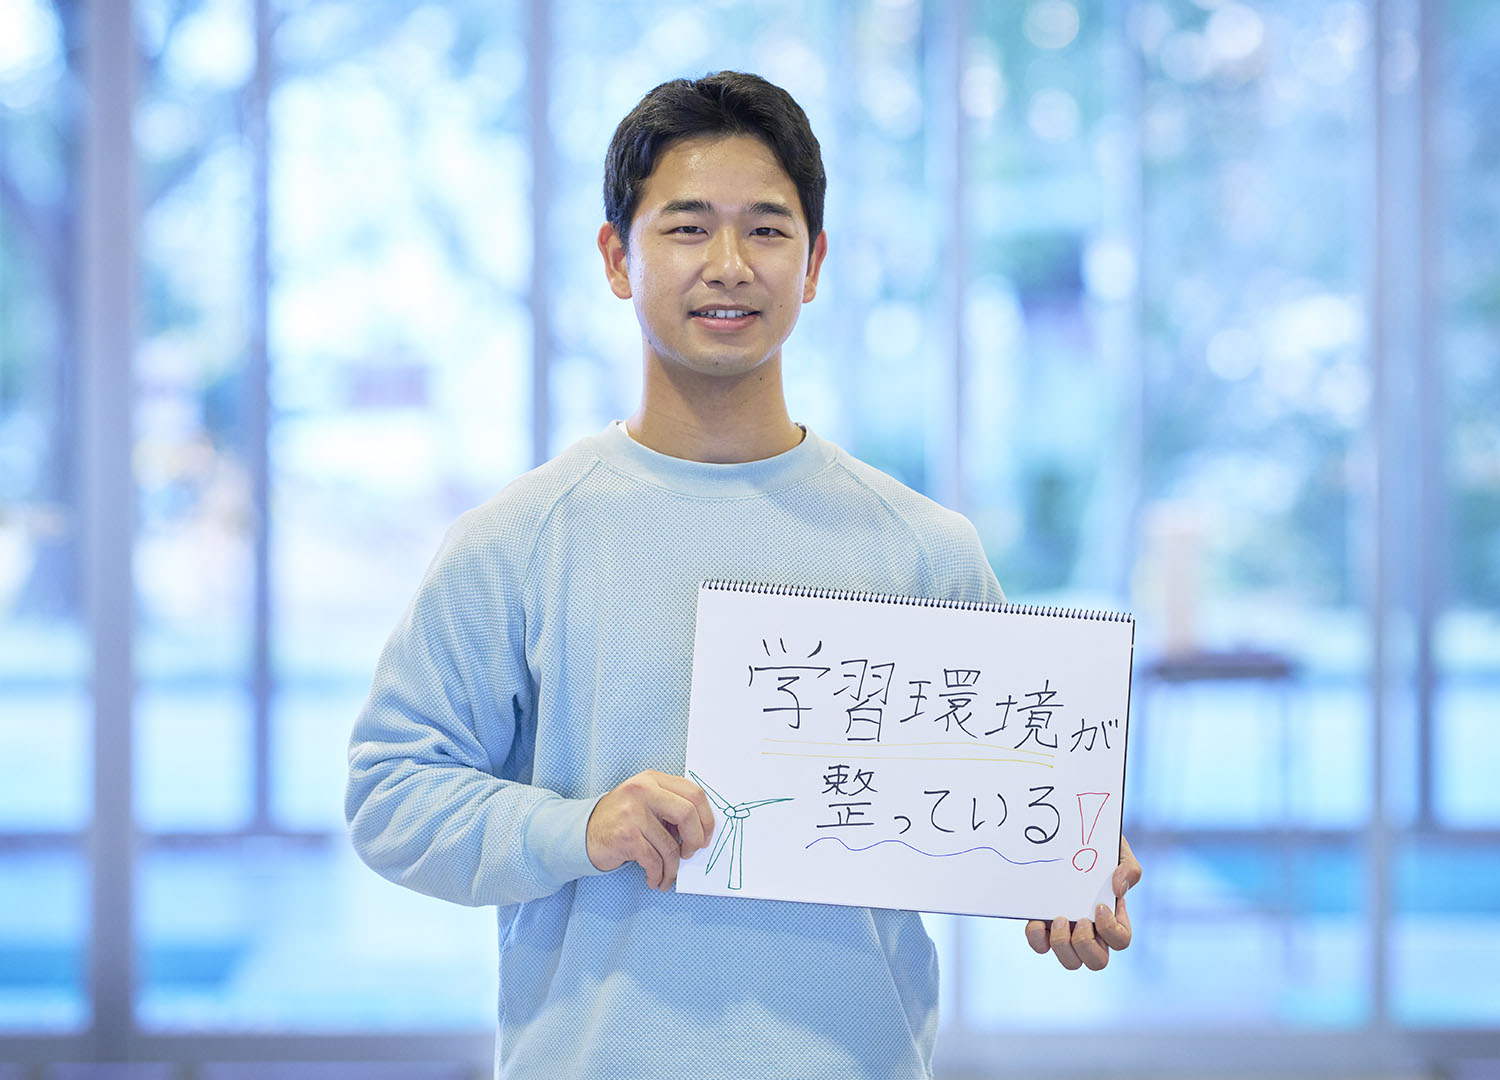 学習環境が
整っている!